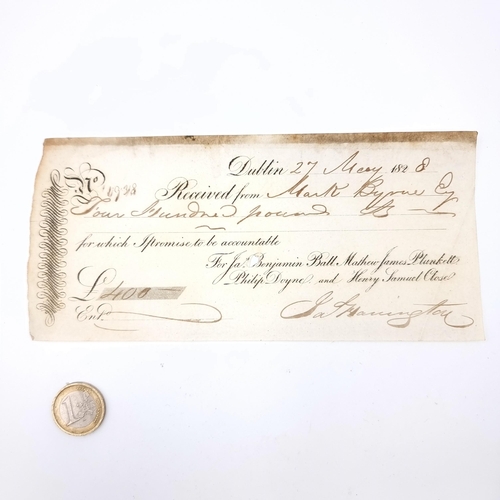 Dublin 27 May 1828
No 4938
Received from Mark Byrne Esq
Four Hundred pounds
for which I promise to be accountable
For Ja.s Benjamin Ball Mathew James Plunkett
Philip Doyne and Henry Samuel Close
£400
Ent.
Jas Harrington
1